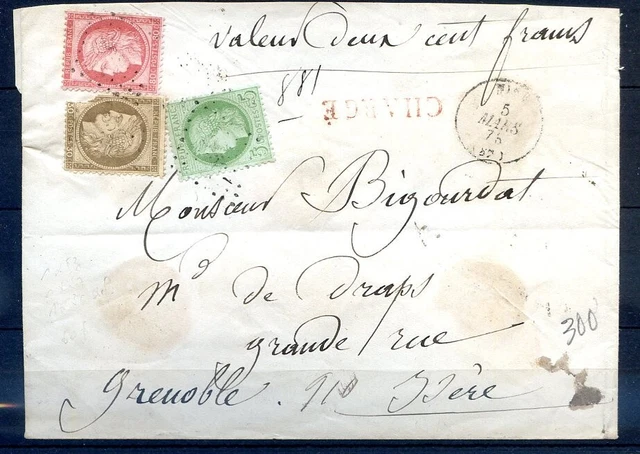 valeur deux cent francs
881
CHARGÉ
5
MARS
75
Monsieur Bigourdat
Md de draps
grande rue
Grenoble. Isère
300